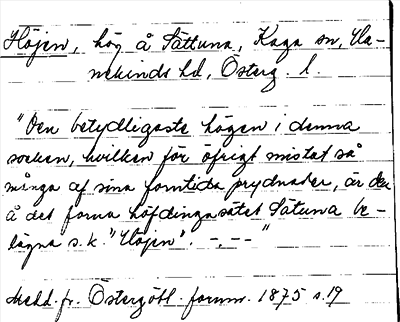 Höjen, hög å Sättuna, Kaga sn, Ha-
nekinds hd, Österg. l.
"Den betydligaste högen i denna
socken, hvilken för öfrigt mistat så
många af sina forntida prydnader, är den
å det forna höfdingasätet Sätuna be-
lägna s.k. "Höjen". -,-- "
Medd. fr. Östergötl. fornm. 1875 s.19